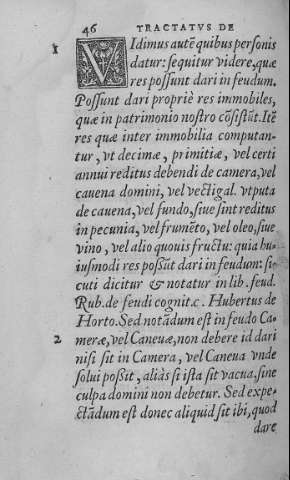 46 TRACTATVS DE
1 VIdimus autē quibus personis
datur: sequitur videre, quæ
res possunt dari in feudum.
Possunt dari propriè res immobiles,
quæ in patrimonio nostro cōsistūt. Itē
res quæ inter immobilia computan-
tur, vt decimæ, primitiæ, vel certi
annui reditus debendi de camera, vel
cauena domini, vel vectigal. vtputa
de cauena, vel fundo, siue sint reditus
in pecunia, vel frumēto, vel oleo, siue
vino, vel alio quouis fructu: quia hu-
iusmodi res possūt dari in feudum: si-
cuti dicitur & notatur in lib. feud.
Rub. de feudi cognit. c. Hubertus de
Horto. Sed notādum est in feudo Ca-
2 meræ, vel Caneuæ, non debere id dari
nisi sit in Camera, vel Caneua vnde
solui possit, aliàs si ista sit vacua, sine
culpa domini non debetur. Sed expe-
ctādum est donec aliquid sit ibi, quod
dare